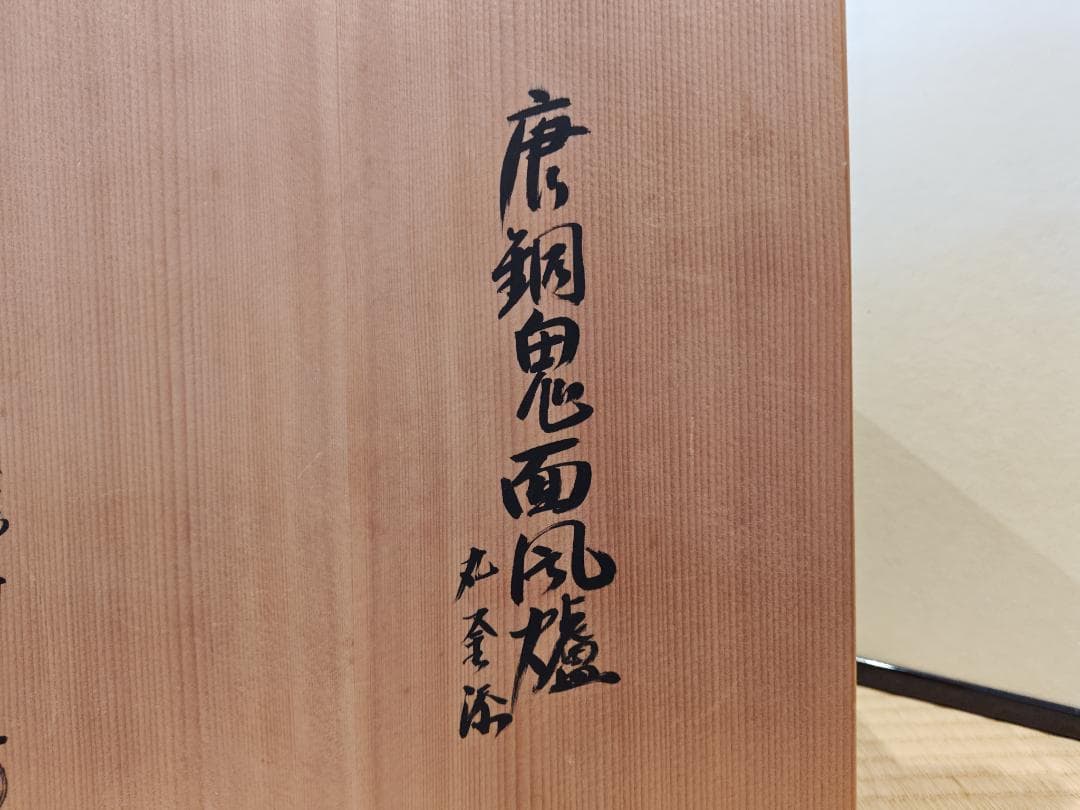 唐銅鬼面風爐
丸釜添